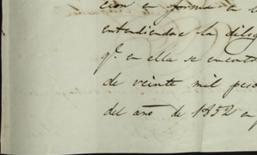 cion en forma a l
entendiendose la dilig
q.e en ella se encont
de veinte mil peso
del año de 1852 en p